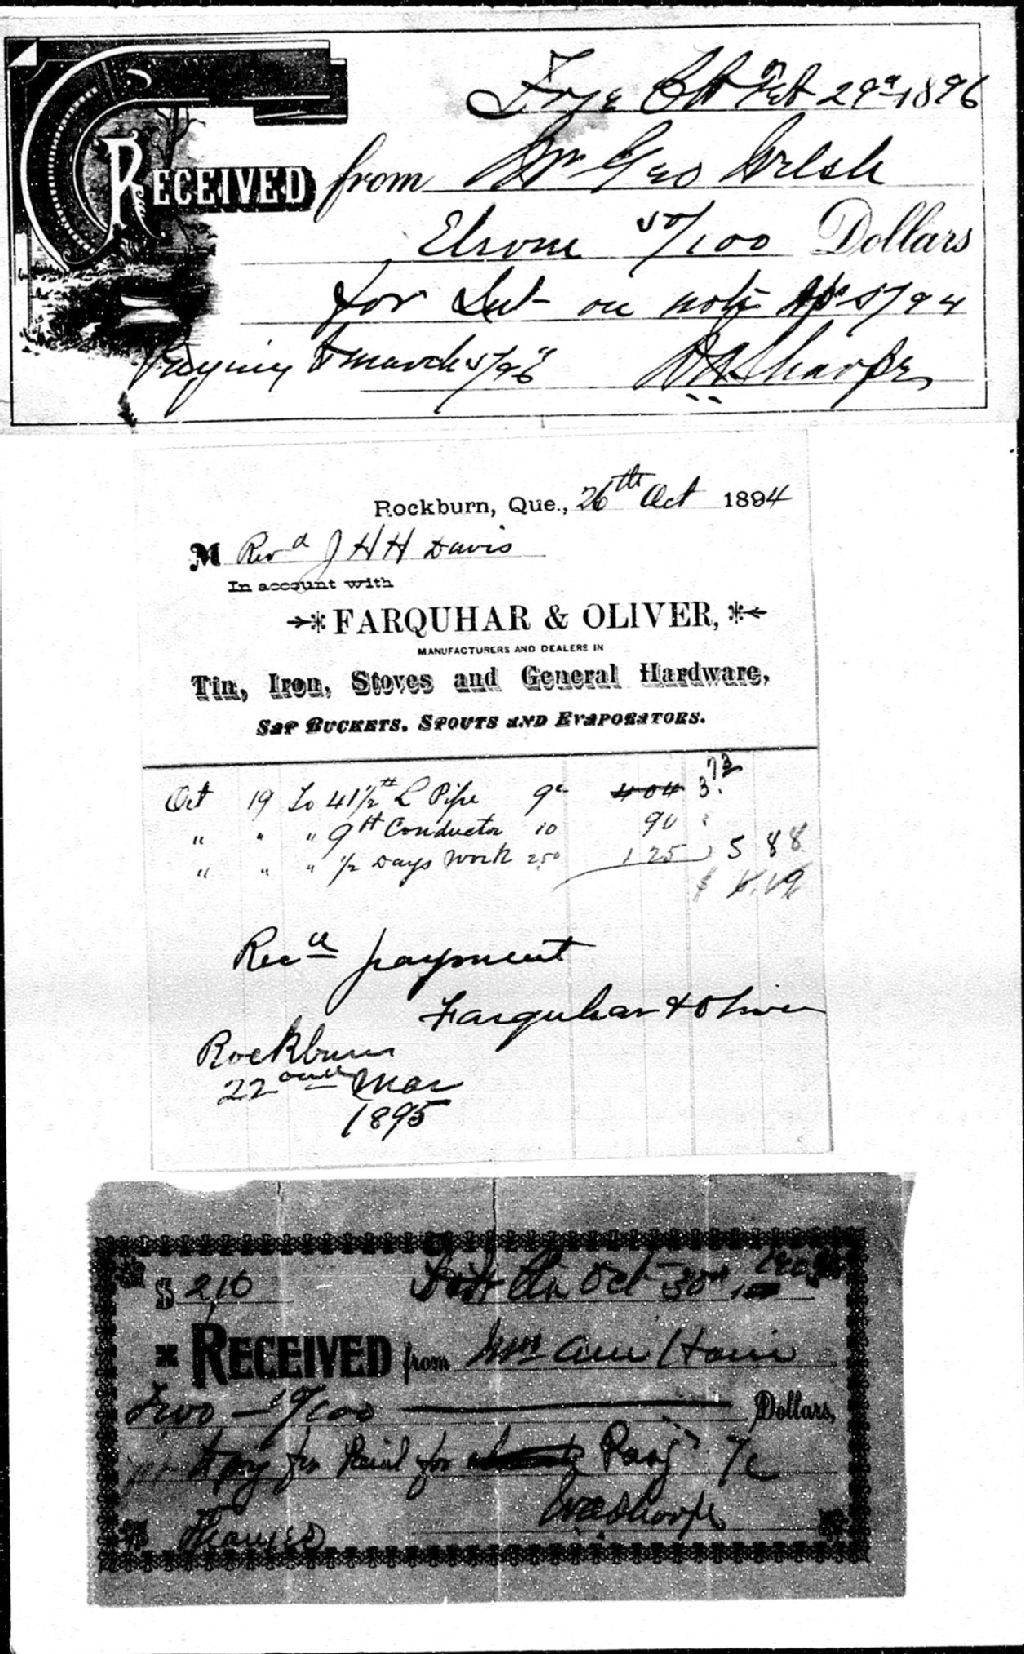 Feb 29th 1896
RECEIVED from Mr Geo Welsh
50/100 Dollars
for Int on note 5/94
Paying to March 5/96 Sharpe
Rockburn, Que., 26th Oct 1894
M Revd J H H Davis
In account with
FARQUHAR & OLIVER,
MANUFACTURERS AND DEALERS IN
Tin, Iron, Stoves and General Hardware,
SAP BUCKETS, SPOUTS AND EVAPORATORS.
Oct 19 To 41½ ft L Pipe 9c 404 3.73
" " " 9 ft Conductor 10 90
" " " ½ Days Work 250 1 25 5 88
$ 6.19
Recd payment
Farquhar & Oliver
Rockburn
22 Mar
1895
$ 2,10 Oct 30th
RECEIVED from Mrs
Two 10/100 Dollars,
for Paid for
Sharpe